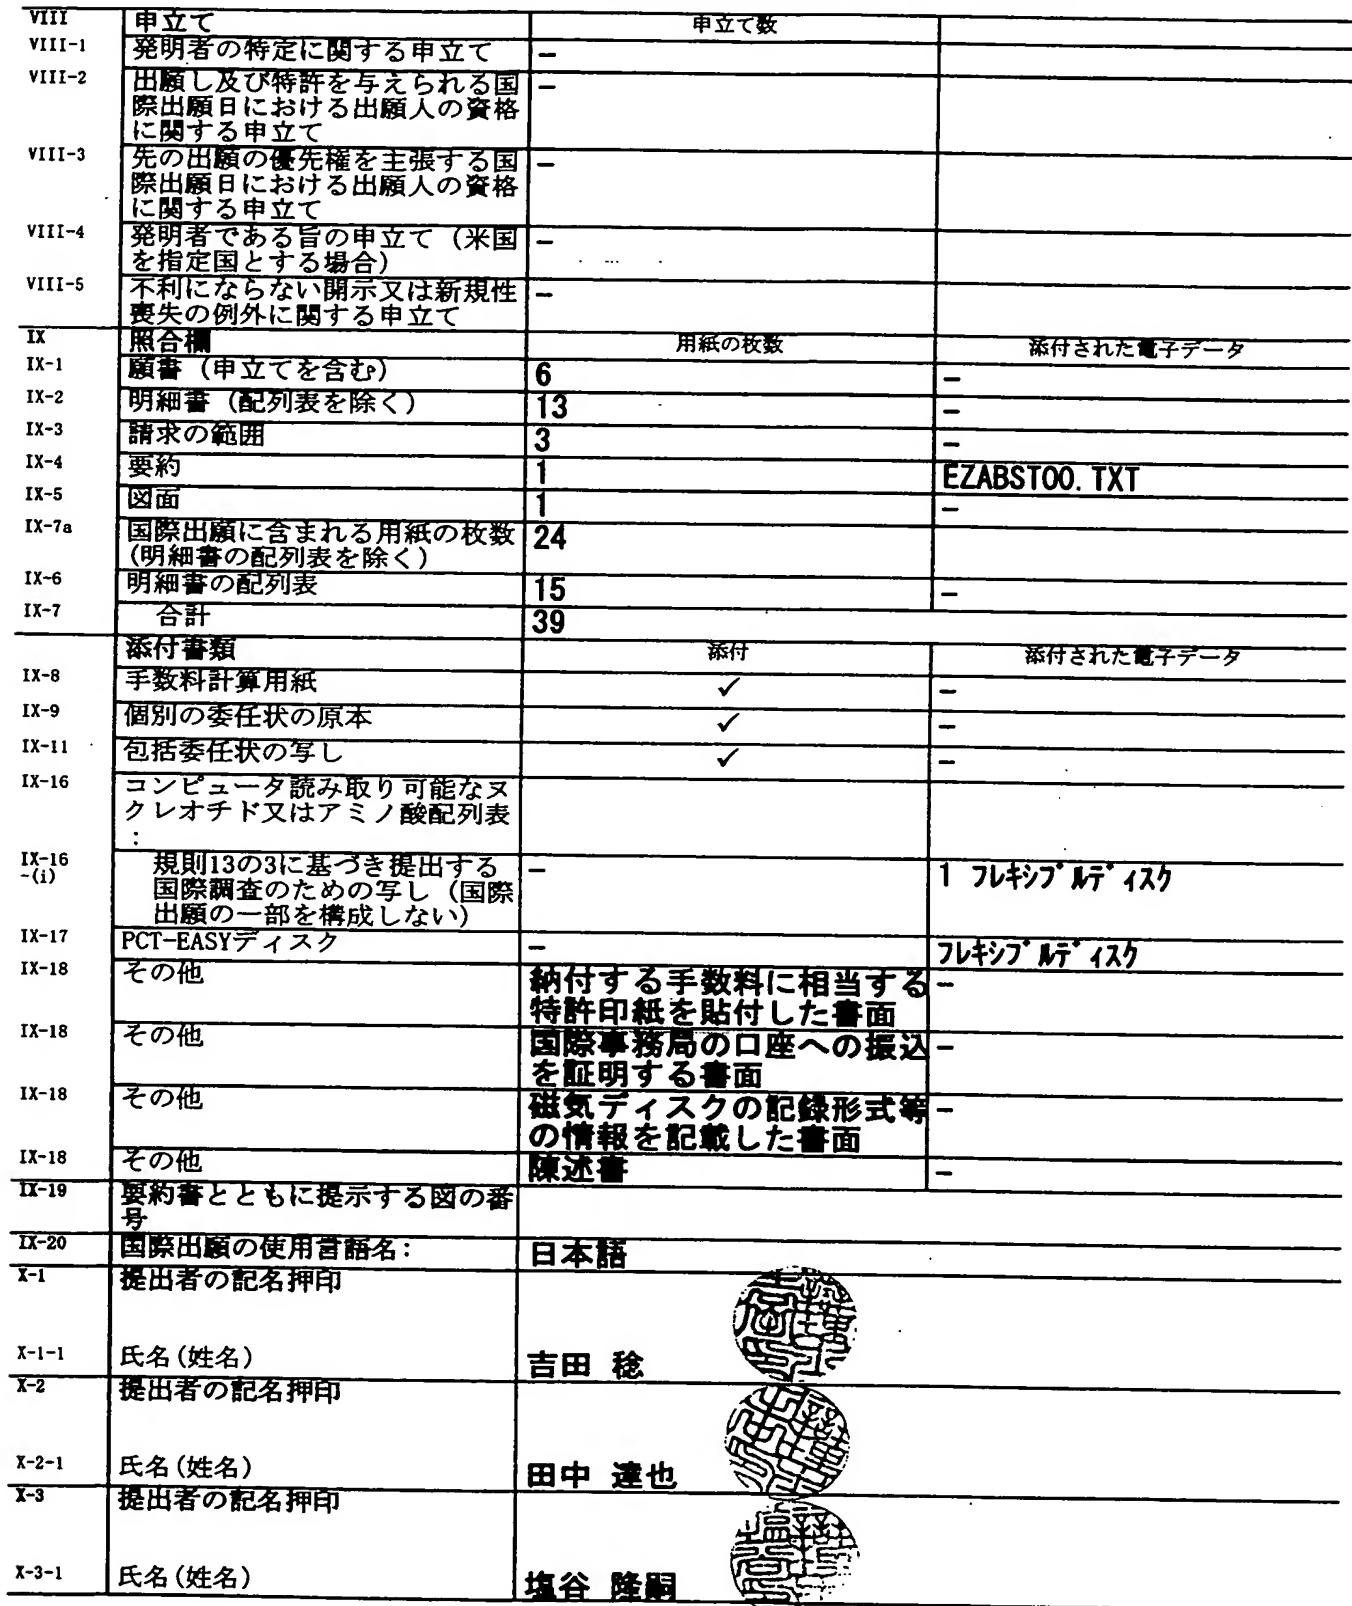 VIII 申立て 申立て数
VIII-1 発明者の特定に関する申立て –
VIII-2 出願し及び特許を与えられる国 –
際出願日における出願人の資格
に関する申立て
VIII-3 先の出願の優先権を主張する国 –
際出願日における出願人の資格
に関する申立て
VIII-4 発明者である旨の申立て（米国 –
を指定国とする場合）
VIII-5 不利にならない開示又は新規性 –
喪失の例外に関する申立て
IX 照合欄 用紙の枚数 添付された電子データ
IX-1 願書（申立てを含む） 6 –
IX-2 明細書（配列表を除く） 13 –
IX-3 請求の範囲 3 –
IX-4 要約 1 EZABST00.TXT
IX-5 図面 1 –
IX-7a 国際出願に含まれる用紙の枚数 24
（明細書の配列表を除く）
IX-6 明細書の配列表 15 –
IX-7 合計 39
添付書類 添付 添付された電子データ
IX-8 手数料計算用紙 ✓ –
IX-9 個別の委任状の原本 ✓ –
IX-11 包括委任状の写し ✓ –
IX-16 コンピュータ読み取り可能なヌ
クレオチド又はアミノ酸配列表
:
IX-16 規則13の3に基づき提出する – 1 フレキシブルディスク
-(i) 国際調査のための写し（国際
出願の一部を構成しない）
IX-17 PCT-EASYディスク – フレキシブルディスク
IX-18 その他 納付する手数料に相当する –
特許印紙を貼付した書面
IX-18 その他 国際事務局の口座への振込 –
を証明する書面
IX-18 その他 磁気ディスクの記録形式等 –
の情報を記載した書面
IX-18 その他 陳述書 –
IX-19 要約書とともに提示する図の番
号
IX-20 国際出願の使用言語名: 日本語
X-1 提出者の記名押印
X-1-1 氏名(姓名) 吉田 稔
X-2 提出者の記名押印
X-2-1 氏名(姓名) 田中 達也
X-3 提出者の記名押印
X-3-1 氏名(姓名) 塩谷 隆嗣